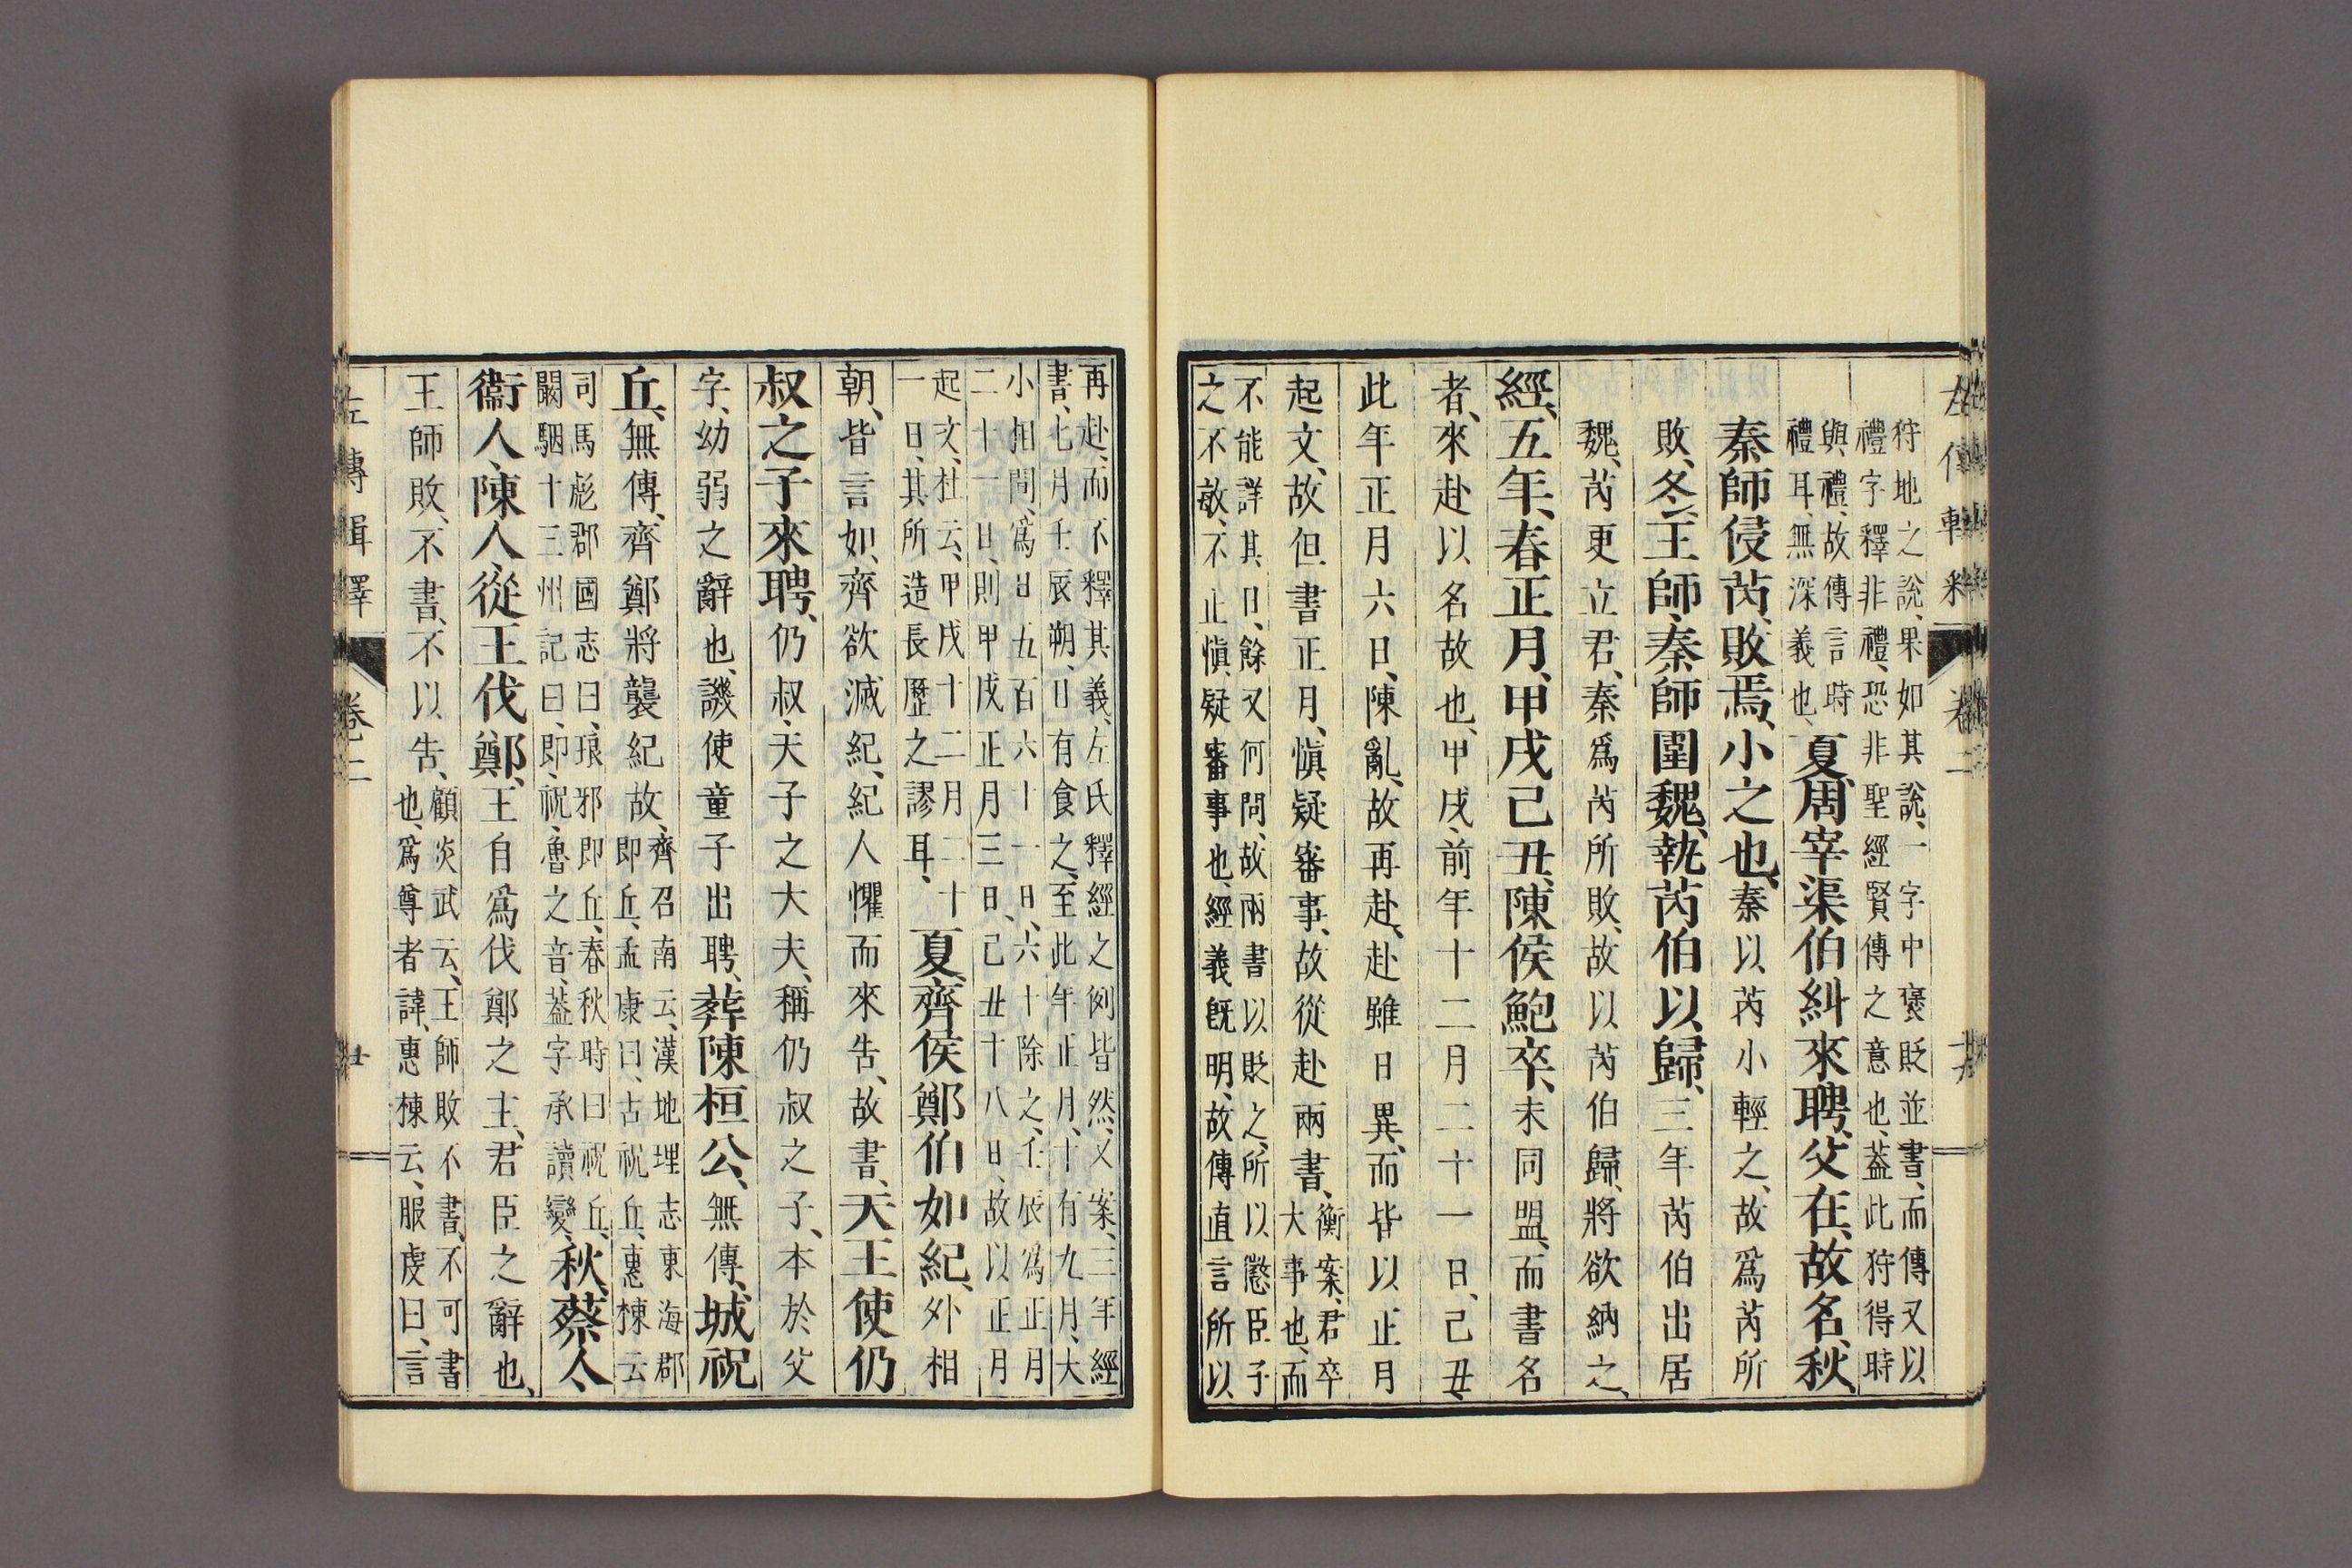 左傳輯釋 卷二
狩地之說、果如其說、一字中褒貶並書、而傳又以
禮字釋非禮、恐非聖經賢傳之意也、葢此狩得時
與禮、故傳言時
禮耳、無深義也、
夏、周宰渠伯糾來聘、父在、故名、秋、
秦師侵芮、敗焉、小之也、秦以芮小輕之、故爲芮所
敗、冬、王師、秦師圍魏、執芮伯以歸、三年芮伯出居
魏、芮更立君、秦爲芮所敗、故以芮伯歸、將欲納之、
經、五年、春正月、甲戌己丑、陳侯鮑卒、未同盟、而書名
者、來赴以名故也、甲戌、前年十二月二十一日、己丑、
此年正月六日、陳亂、故再赴、赴雖日異、而皆以正月
起文、故但書正月、愼疑審事、故從赴兩書、
衡案、君卒
大事也、而
不能詳其日、餘又何問、故兩書以貶之、所以懲臣子
之不敬、不止愼疑審事也、經義既明、故傳直言所以
再赴、而不釋其義、左氏釋經之例皆然、又案、三年經
書、七月壬辰朔、日有食之、至此年正月、十有九月、大
小相間、爲日五百六十一日、六十除之、壬辰爲正月
二十一日、則甲戌正月三日、己丑十八日、故以正月
起文、杜云、甲戌十二月二十
一日、其所造長歷之謬耳、
夏、齊侯鄭伯如紀、外相
朝、皆言如、齊欲滅紀、紀人懼而來告、故書、天王使仍
叔之子來聘、仍叔、天子之大夫、稱仍叔之子、本於父
字、幼弱之辭也、譏使童子出聘、葬陳桓公、無傳、城祝
丘、無傳、齊鄭將襲紀故、
齊召南云、漢地理志東海郡
即丘、孟康曰、古祝丘、惠棟云
司馬彪郡國志曰、琅邪即丘、春秋時曰祝丘、
闞駰十三州記曰、即、祝、魯之音、葢字承讀變、
秋、蔡人、
衞人、陳人、從王伐鄭、王自爲伐鄭之主、君臣之辭也、
王師敗、不書、不以告、
顧炎武云、王師敗不書、不可書
也、爲尊者諱、惠棟云、服虔曰、言
左傳輯釋 卷二